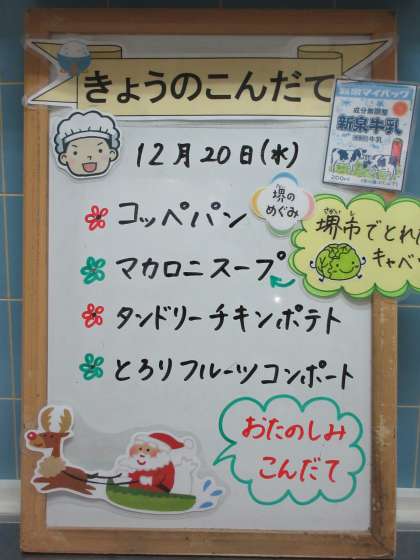 きょうのこんだて
12月20日(水)
成分無調整
新泉牛乳
200ml
堺の
めぐみ
コッペパン
堺市でとれた
さかいし
キャベツ
マカロニスープ
タンドリーチキンポテト
とろりフルーツコンポート
おたのしみ
こんだて